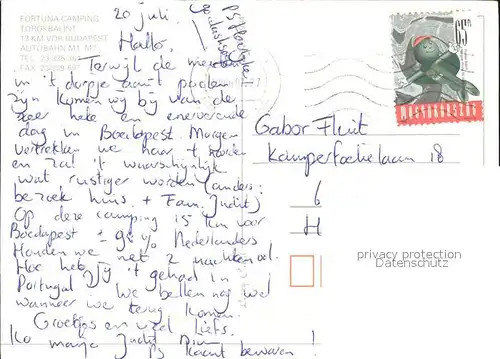 FORTUNA CAMPING
TÖRÖKBÁLINT
13 KM VOR BUDAPEST
AUTOBAHN M1 M7
TEL
FAX
20 juli.
PS Hartelijke
Hallo,
Terwijl de meiden
in 't dorpje aan 't
Zijn komen wij bij van de
zeer hete en enerverende
dag in Boedapest. Morgen
vertrekken we naar 't
en zal 't waarschijnlijk
wat rustiger worden (anders:
bezoek huis + Fam. Judit)
Op deze camping 15 km voor
Boedapest ± 95 % Nederlanders
Houden we net 2 nachten vol.
Hoe heb jij 't gehad in
Portugal? We bellen nog wel
wanneer we terug komen.
Groetjes en veel Liefs.
Ko Judit
PS Kaart bewaren!
65
Gabor Fluit
Kamperfoelielaan 18
6
H
privacy protection
Datenschutz